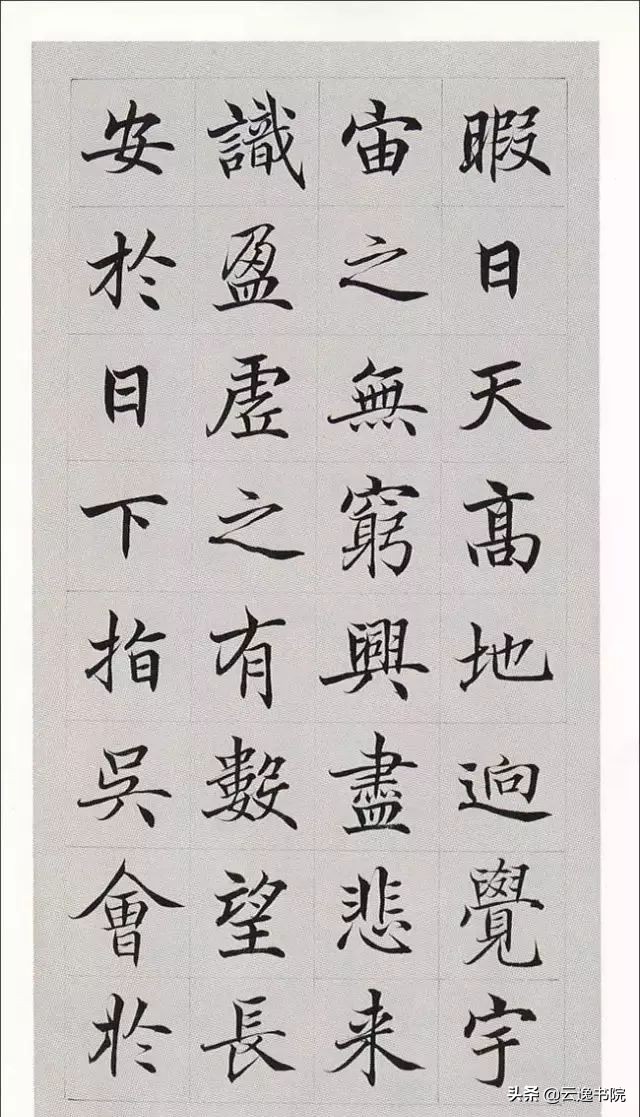 暇日天髙地逈覺宇
宙之無窮興盡悲来
識盈虛之有數望長
安於日下指吳會於
头条 @云逸书院